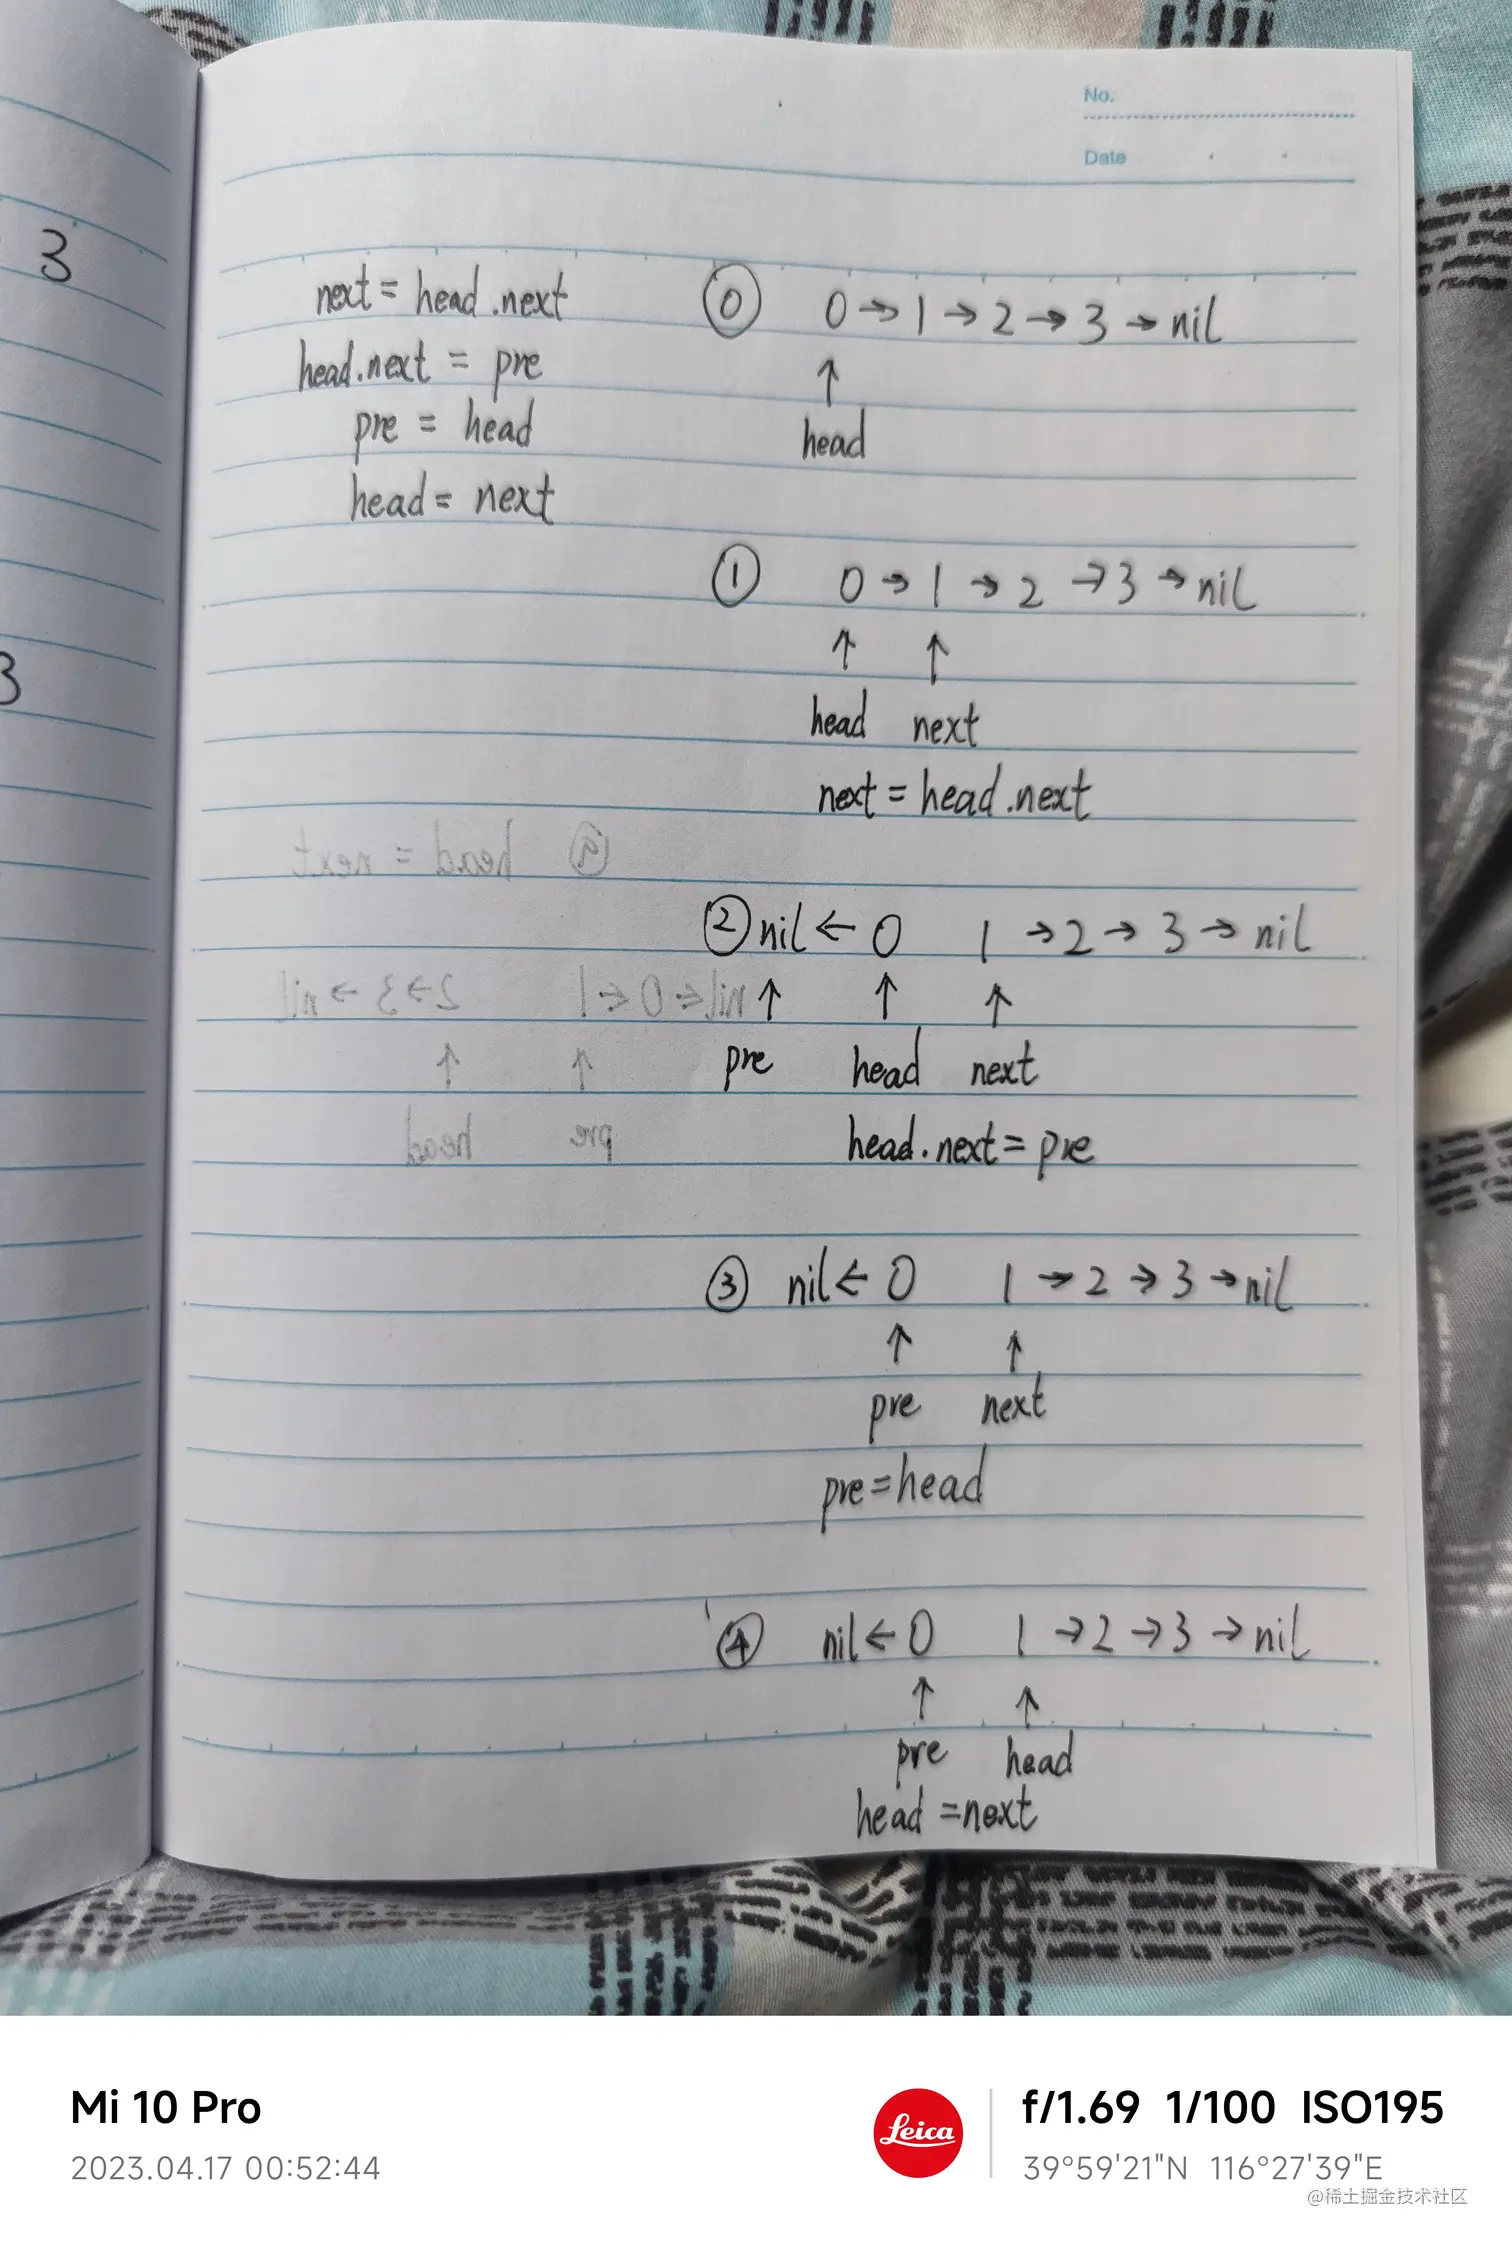 3
3
No.
Date
next = head.next
head.next = pre
pre = head
head = next
⓪ 0 → 1 → 2 → 3 → nil
↑
head
① 0 → 1 → 2 → 3 → nil
↑ ↑
head next
next = head.next
② nil ← 0 1 → 2 → 3 → nil
↑ ↑ ↑
pre head next
head.next = pre
③ nil ← 0 1 → 2 → 3 → nil
↑ ↑
pre next
pre = head
④ nil ← 0 1 → 2 → 3 → nil
↑ ↑
pre head
head = next
Mi 10 Pro
2023.04.17 00:52:44
Leica
f/1.69 1/100 ISO195
39°59'21"N 116°27'39"E
@稀土掘金技术社区